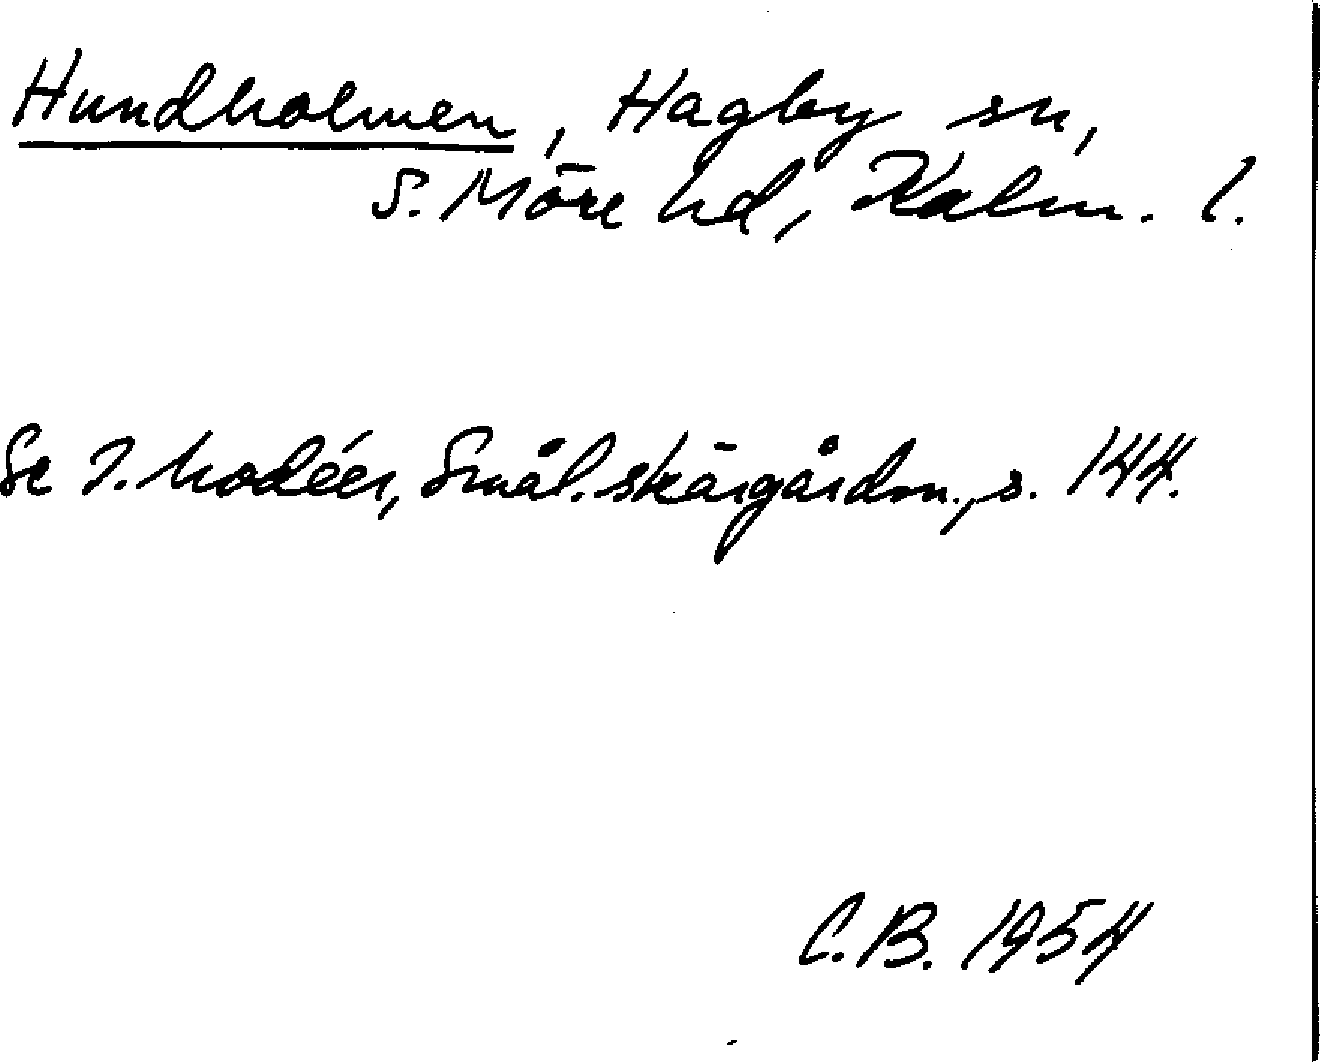 Hundholmen, Hagby sn,
S. Möre hd, Kalm. l.
Se I. Modéer, Smål. skärgårdsn., s. 144.
C.B. 1954